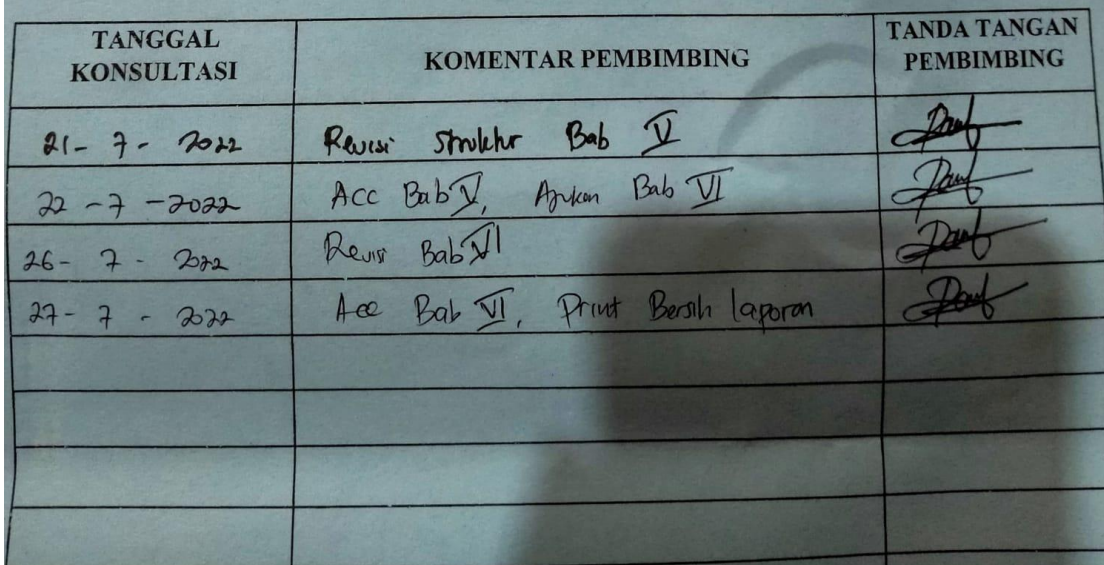 TANGGAL KONSULTASI KOMENTAR PEMBIMBING TANDA TANGAN PEMBIMBING
21 - 7 - 2022 Revisi Struktur Bab V
22 - 7 - 2022 Acc Bab V, Ajukan Bab VI
26 - 7 - 2022 Revisi Bab VI
27 - 7 - 2022 Acc Bab VI, Print Bersih laporan